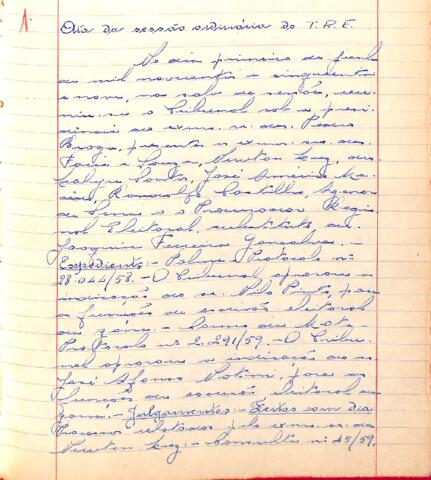 1
Ata da sessão ordinária do T.R.E.
No dia primeiro de
de mil novecentos e cinquenta
e nove, na sala de sessões, reu-
niu-se o Tribunal sob a presi-
dência do exmo. sr. des. Pedro
Braga, presentes os exmos. srs. des.
Faria e Souza, Newton Luz, drs.
Santos, José Américo Ma-
cêdo, Castilho,
de Sena e o Procurador Regio-
nal Eleitoral, substituto, dr.
Joaquim Ferreira Gonçalves. -
Expediente: - Palma - Protocolo nº
28.044/58. - O Tribunal aprovou a
indicação do sr. Nilo Pinto, para
a função de escrivão eleitoral
da zona. - da Mata -
Protocolo nº 2.291/59. - O Tribu-
nal aprovou a indicação do sr.
José Afonso, para as
funções de escrivão eleitoral da
zona. - Julgamentos - Feitos com dia
Processo relatado pelo exmo. sr. des.
Newton Luz: - Consulta nº 45/59.